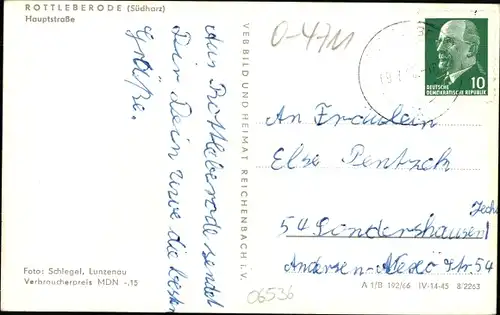 ROTTLEBERODE (Südharz)
Hauptstraße
Aus Rottleberode sendet
Dir Dein Uwe die besten
Grüße.
Foto: Schlegel, Lunzenau
Verbraucherpreis MDN -,15
VEB BILD UND HEIMAT REICHENBACH i. V.
O-4711
10
DEUTSCHE
DEMOKRATISCHE REPUBLIK
An Fräulein
Else Pentzek
54 Sondershausen/
Jecha
Andersen-Nexö Str. 54
A 1/B 192/66 IV-14-45 8/2263
06536